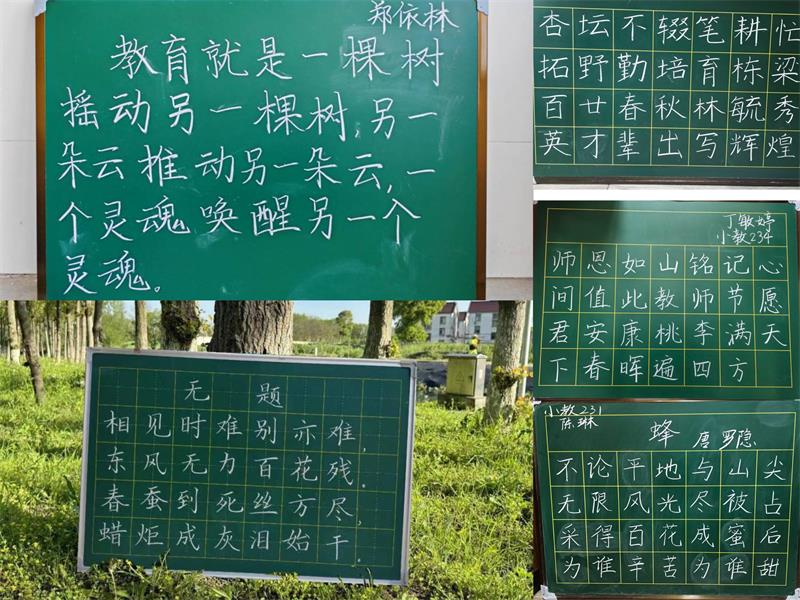 郑依林
教育就是一棵树
摇动另一棵树,另一
朵云推动另一朵云,一
个灵魂唤醒另一个
灵魂。
杏坛不辍笔耕忙
拓野勤培育栋梁
百廿春秋林毓秀
英才辈出写辉煌
丁敏婷
小教234
师恩如山铭记心
间值此教师节愿
君安康桃李满天
下春晖遍四方
无题
相见时难别亦难,
东风无力百花残。
春蚕到死丝方尽,
蜡炬成灰泪始干。
小教231
陈琳
蜂 唐 罗隐
不论平地与山尖
无限风光尽被占
采得百花成蜜后
为谁辛苦为谁甜